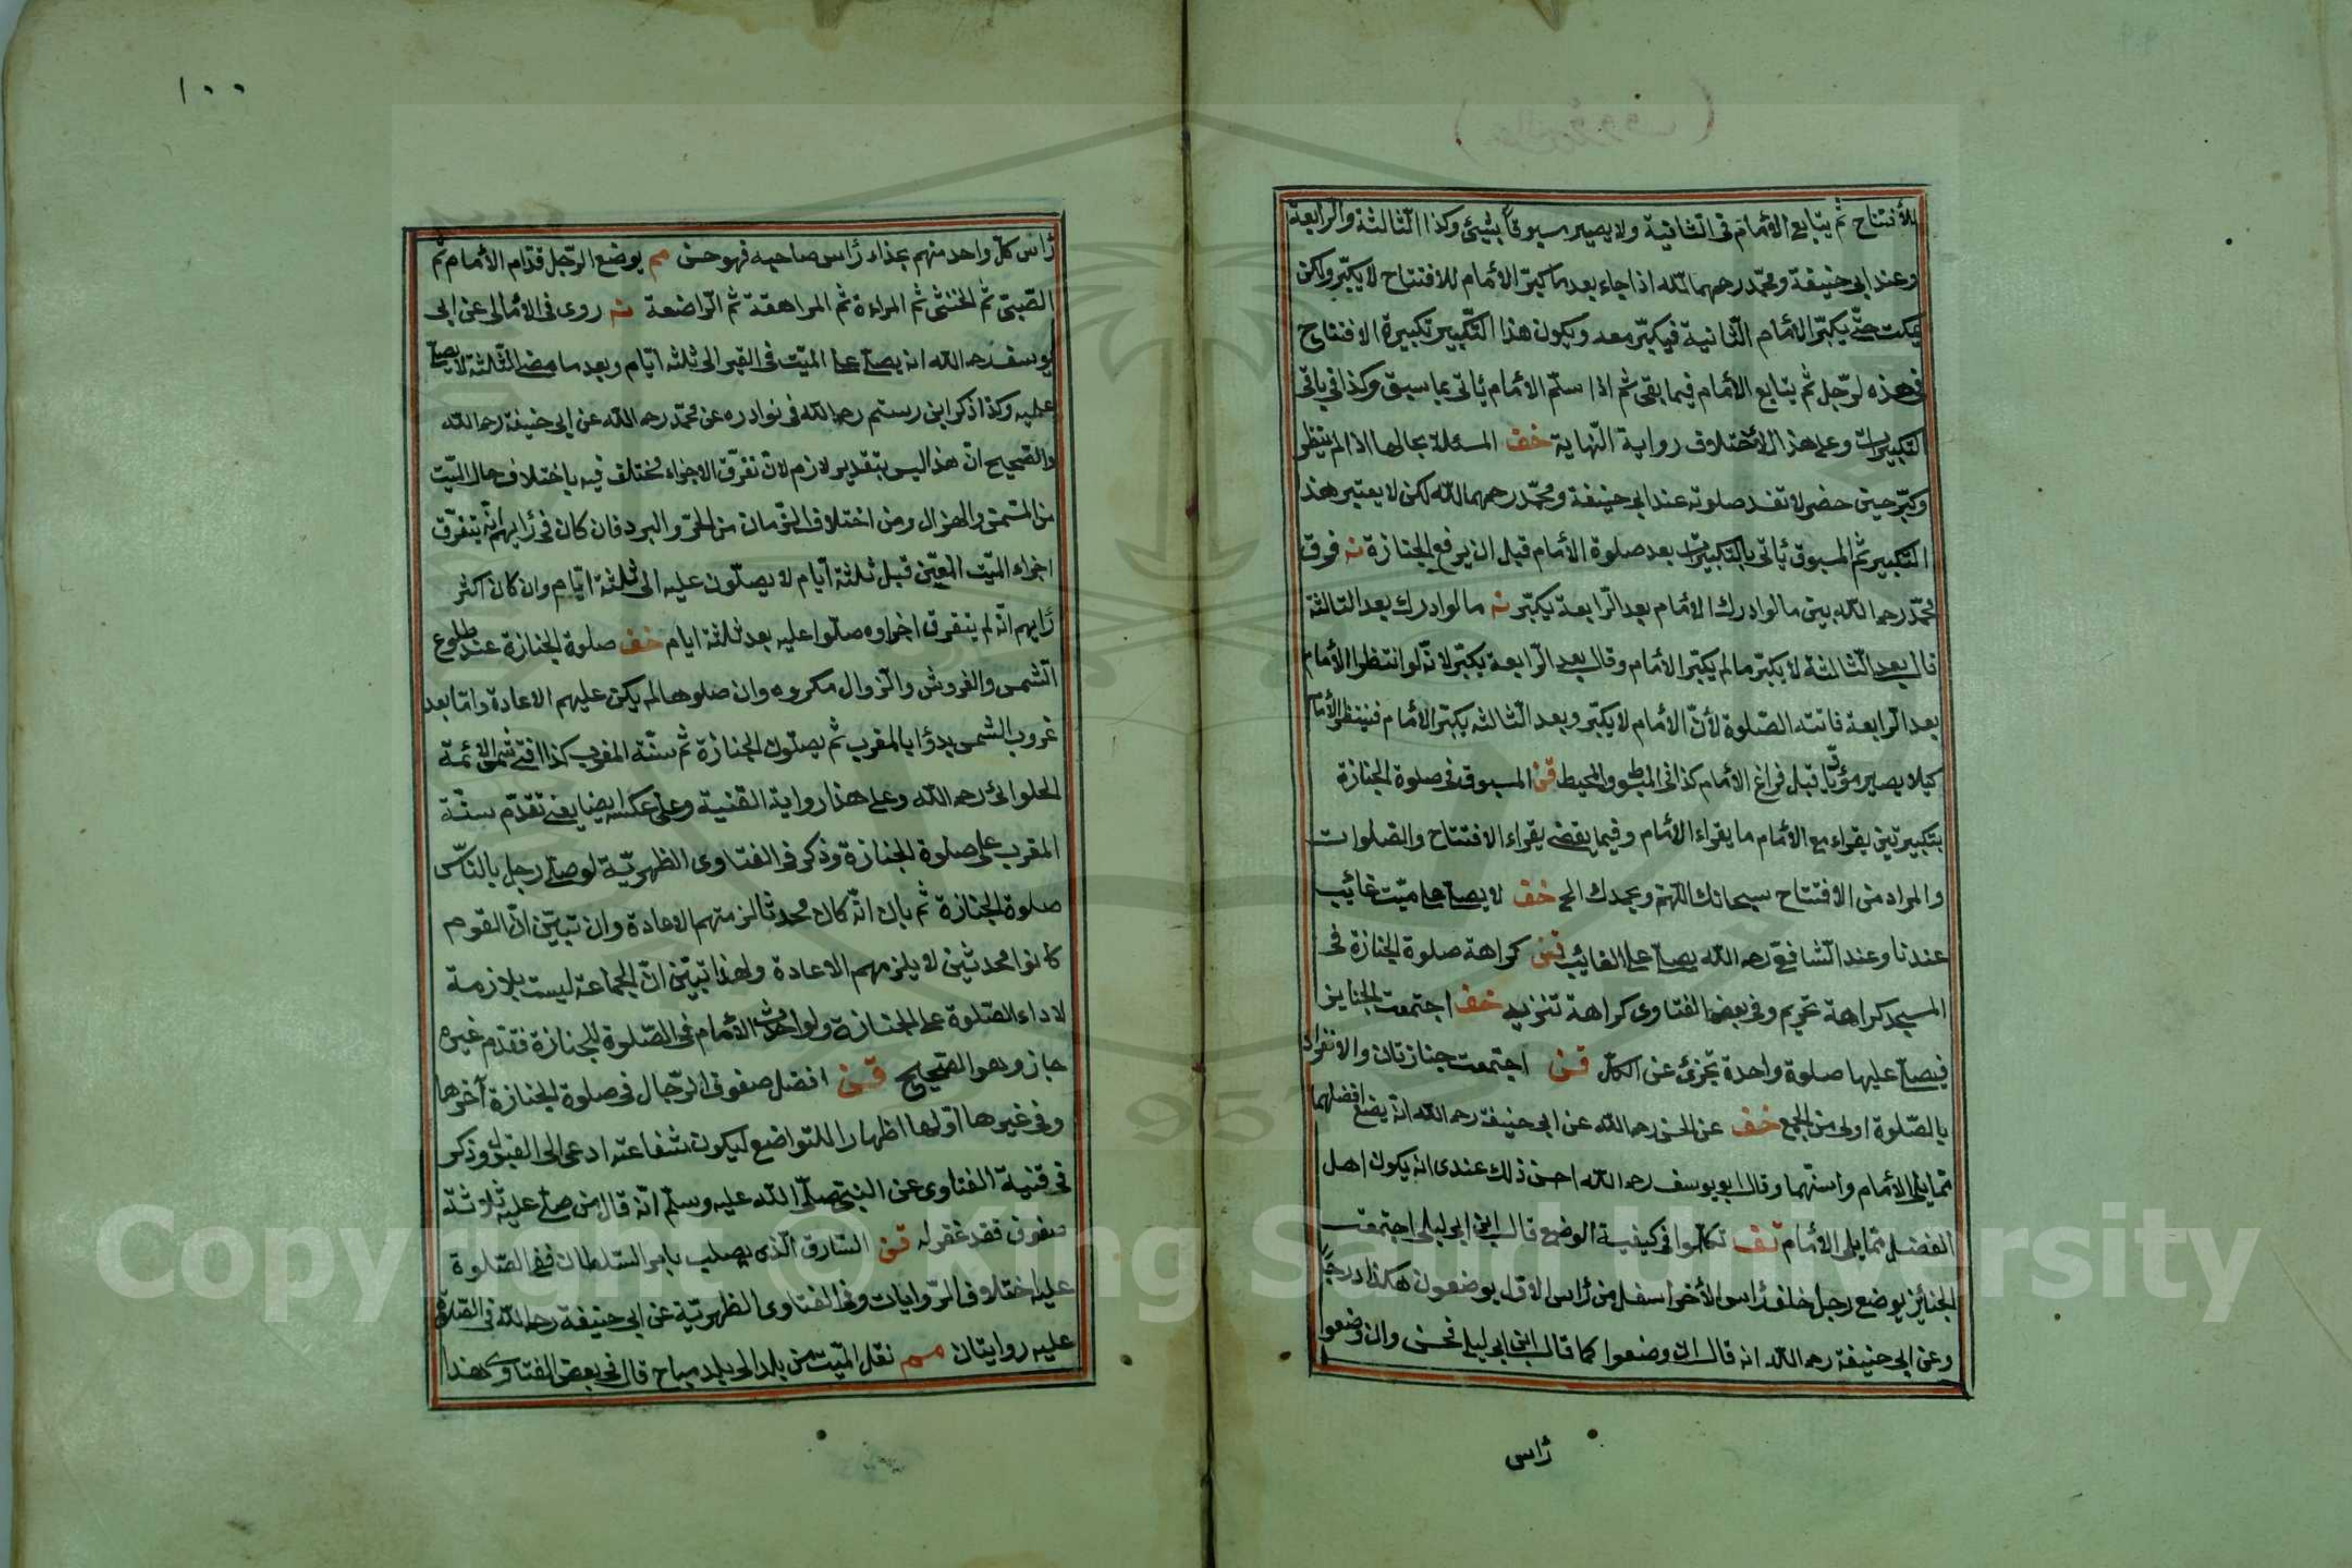 للأفتتاح ثم يتابع الأمام فى الثانية ولا يصير مسبوقا بشيئ وكذا الثالثة والرابعة
وعند ابى حنيفة ومحمّد رحمهما اللّه اذا جاء بعد ما كبّر الأمام للافتتاح لا يكبّر ولكن
يمكث حتّى يكبّر الأمام الثّانية فيكبّر معه ويكون هذا التّكبير تكبيرة الافتتاح
فى هذه لرّجل ثم يتابع الأمام فيما بقى ثم اذا سلّم الأمام يأتى بما سبق وكذا فى باقى
التكبيرات وعلى هذا الأختلاف رواية النّهاية خف المسئلة بحالها اذا لم ينتظر
وكبّر حين حضر لا تفسد صلوته عند ابى حنيفة ومحمّد رحمهما اللّه لكن لا يعتبر هذا
التكبير ثم المسبوق يأتى بالتكبيرات بعد صلوة الأمام قبل ان يرفع الجنازة نه فرق
محمّد رحمه اللّه بين ما لو ادرك الأمام بعد الرّابعة يكبّر نه ما لو ادرك بعد الثالثة
قال بعد الثّالثة لا يكبّر ما لم يكبّر الأمام وقال بعد الرّابعة يكبّر لانّه لو انتظر الأمام
بعد الرّابعة فاتته الصّلوة لأنّ الأمام لا يكبّر وبعد الثّالثه يكبّر الأمام فينتظر الأمام
كيلا يصير مؤدّيا قبل فراغ الأمام كذا فى والمحيط قن المسبوق فى صلوة الجنازة
بتكبيرتين يقراء مع الأمام ما يقراء الأمام وفيما يقضى يقراء الافتتاح والصلوات
والمراد من الافتتاح سبحانك اللّهمّ وبحمدك الخ خف لا يصلّى على ميّت غائب
عندنا وعند الشّافعىّ رحمه اللّه يصلّى على الغائب قن كراهة صلوة الجنازة فى
المسجد كراهة تحريم وفى بعض الفتاوى كراهة تنزيه خف اجتمعت الجنايز
فيصلّى عليها صلوة واحدة تجزئ عن الكلّ قن اجتمعت جنازتان والانفراد
بالصّلوة اولى من الجمع خف عن الحسن رحمه اللّه عن ابى حنيفة رحمه اللّه انّه يضع افضلهما
ممّا يلى الأمام واسنّهما وقال ابو يوسف رحمه اللّه احسن ذلك عندى انه يكون اهل
الفضل ممّا يلى الأمام تف تكلّموا فى كيفية الوضع قال ابن ابى ليلى اجتمعت
الجنائز يوضع رجل خلف رأس الأخر اسفل من رأس الاوّل يوضعون هكذا درجًا
وعن ابى حنيفة رحمه اللّه انه قال ان وضعوا كما قال ابن ابى ليلى فحسن وان وضعوا
رأس
١٠٠
رأس كلّ واحد منهم بحذاء رأس صاحبه فهو حسن مم يوضع الرّجل قدّام الأمام ثم
الصّبىّ ثم الخنثى ثم المراءة ثم المراهقة ثم الرّاضعة نه روى فى الأمالى عن ابى
يوسف رحمه اللّه انه يصلّى على الميّت فى القبر الى ثلثه ايّام وبعد ما مضى الثّلثة لا يصلّى
عليه وكذا ذكر ابن رستم رحمه اللّه فى نوادره عن محمّد رحمه اللّه عن ابى حنيفة رحمه اللّه
والصّحيح انّ هذا ليس بتقدير لازم لانّ تفرّق الاجزاء مختلف فيه باختلاف حال الميّت
من السّمن والهزال ومن اختلاف الزّمان من الحرّ والبرد فان كان فى رأيهم انّه يتفرّق
اجزاء الميّت المعيّن قبل ثلثة ايّام لا يصلّون عليه الى ثلثة ايّام وان كان اكثر
رأيهم انّه لم يتفرق اجزاوه صلّوا عليه بعد ثلثة ايام خف صلوة الجنازة عند طلوع
الشّمس والغروش والزّوال مكروه وان صلوها لم يكن عليهم الاعادة وامّا بعد
غروب الشمس يدؤا بالمغرب ثم يصلّون الجنازة ثم سنّة المغرب كذا افتى شمس الأئمّة
الحلوائى رحمه اللّه وعلى هذا رواية القنية وعلى عكسه ايضا يعنى تقدّم سنّة
المغرب على صلوة الجنازة وذكر فى الفتاوى الظهريّة لو صلّى رجل بالنّاس
صلوة الجنازة ثم بان انّه كان محدثا لزمتهم الاعادة وان تبيّن انّ القوم
كانوا محدثين لا يلزمهم الاعادة ولهذا تبيّن انّ الجماعة ليست بلازمة
لاداء الصّلوة على الجنازة ولو احدث الأمام فى الصّلوة للجنازة فقدم غيره
جاز وهو الصّحيح قن افضل صفوف الرّجال فى صلوة الجنازة آخرها
وفى غيرها اوّلها اظهارا للتواضع ليكون شفاعته ادعى الى القبول وذكر
فى قنية الفتاوى عن النبىّ صلّى اللّه عليه وسلّم انّه قال من صلّى عليه ثلاثة
صفوف فقد غفر له قن السّارق الّذى يصلب بامر السّلطان ففى الصّلوة
عليه اختلاف الرّوايات وفى الفتاوى الظهريّة عن ابى حنيفة رحمه اللّه فى الصّلوة
عليه روايتان مم نقل الميّت من بلد الى بلد مباح قال فى بعض الفتاوى هذا
Copyright © King Saud University